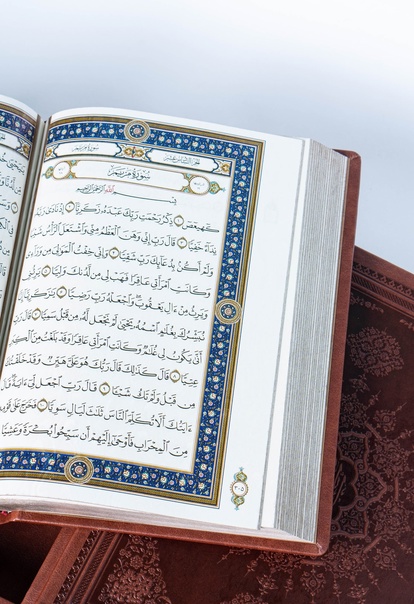 الجزء السادس عشر سورة مريم
سُورَةُ مَرْيَمَ
بِسْمِ ٱللَّهِ ٱلرَّحْمَٰنِ ٱلرَّحِيمِ
كٓهيعٓصٓ ١ ذِكْرُ رَحْمَتِ رَبِّكَ عَبْدَهُۥ زَكَرِيَّآ ٢ إِذْ نَادَىٰ رَبَّهُۥ
نِدَآءً خَفِيًّا ٣ قَالَ رَبِّ إِنِّي وَهَنَ ٱلْعَظْمُ مِنِّي وَٱشْتَعَلَ ٱلرَّأْسُ شَيْبًا
وَلَمْ أَكُنۢ بِدُعَآئِكَ رَبِّ شَقِيًّا ٤ وَإِنِّي خِفْتُ ٱلْمَوَٰلِيَ مِن وَرَآءِي
وَكَانَتِ ٱمْرَأَتِي عَاقِرًا فَهَبْ لِي مِن لَّدُنكَ وَلِيًّا ٥ يَرِثُنِي
وَيَرِثُ مِنْ ءَالِ يَعْقُوبَۖ وَٱجْعَلْهُ رَبِّ رَضِيًّا ٦ يَٰزَكَرِيَّآ إِنَّا
نُبَشِّرُكَ بِغُلَٰمٍ ٱسْمُهُۥ يَحْيَىٰ لَمْ نَجْعَل لَّهُۥ مِن قَبْلُ سَمِيًّا ٧ قَالَ رَبِّ
أَنَّىٰ يَكُونُ لِي غُلَٰمٌ وَكَانَتِ ٱمْرَأَتِي عَاقِرًا وَقَدْ بَلَغْتُ مِنَ ٱلْكِبَرِ
عِتِيًّا ٨ قَالَ كَذَٰلِكَ قَالَ رَبُّكَ هُوَ عَلَيَّ هَيِّنٌ وَقَدْ خَلَقْتُكَ
مِن قَبْلُ وَلَمْ تَكُ شَيْـًٔا ٩ قَالَ رَبِّ ٱجْعَل لِّيٓ ءَايَةًۖ قَالَ
ءَايَتُكَ أَلَّا تُكَلِّمَ ٱلنَّاسَ ثَلَٰثَ لَيَالٍ سَوِيًّا ١٠ فَخَرَجَ عَلَىٰ قَوْمِهِۦ
مِنَ ٱلْمِحْرَابِ فَأَوْحَىٰٓ إِلَيْهِمْ أَن سَبِّحُوا۟ بُكْرَةً وَعَشِيًّا
٣٠٥